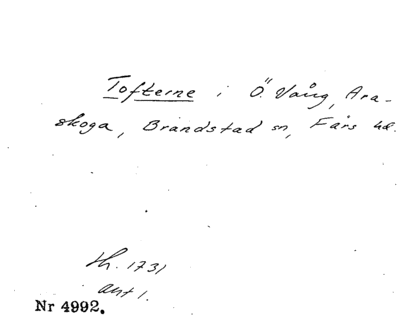 Tofterne i Ö. Vång, Ara-
skoga, Brandstad sn, Färs hd.
th. 1731
akt 1.
Nr 4992.